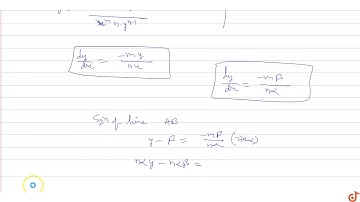 x^n n.y^{n-1}
dy/dx = -my/nx
dy/dx = -mβ/nα
Eqn of line AB
y - β = -mβ/nα (x-α)
nαy - nαβ =